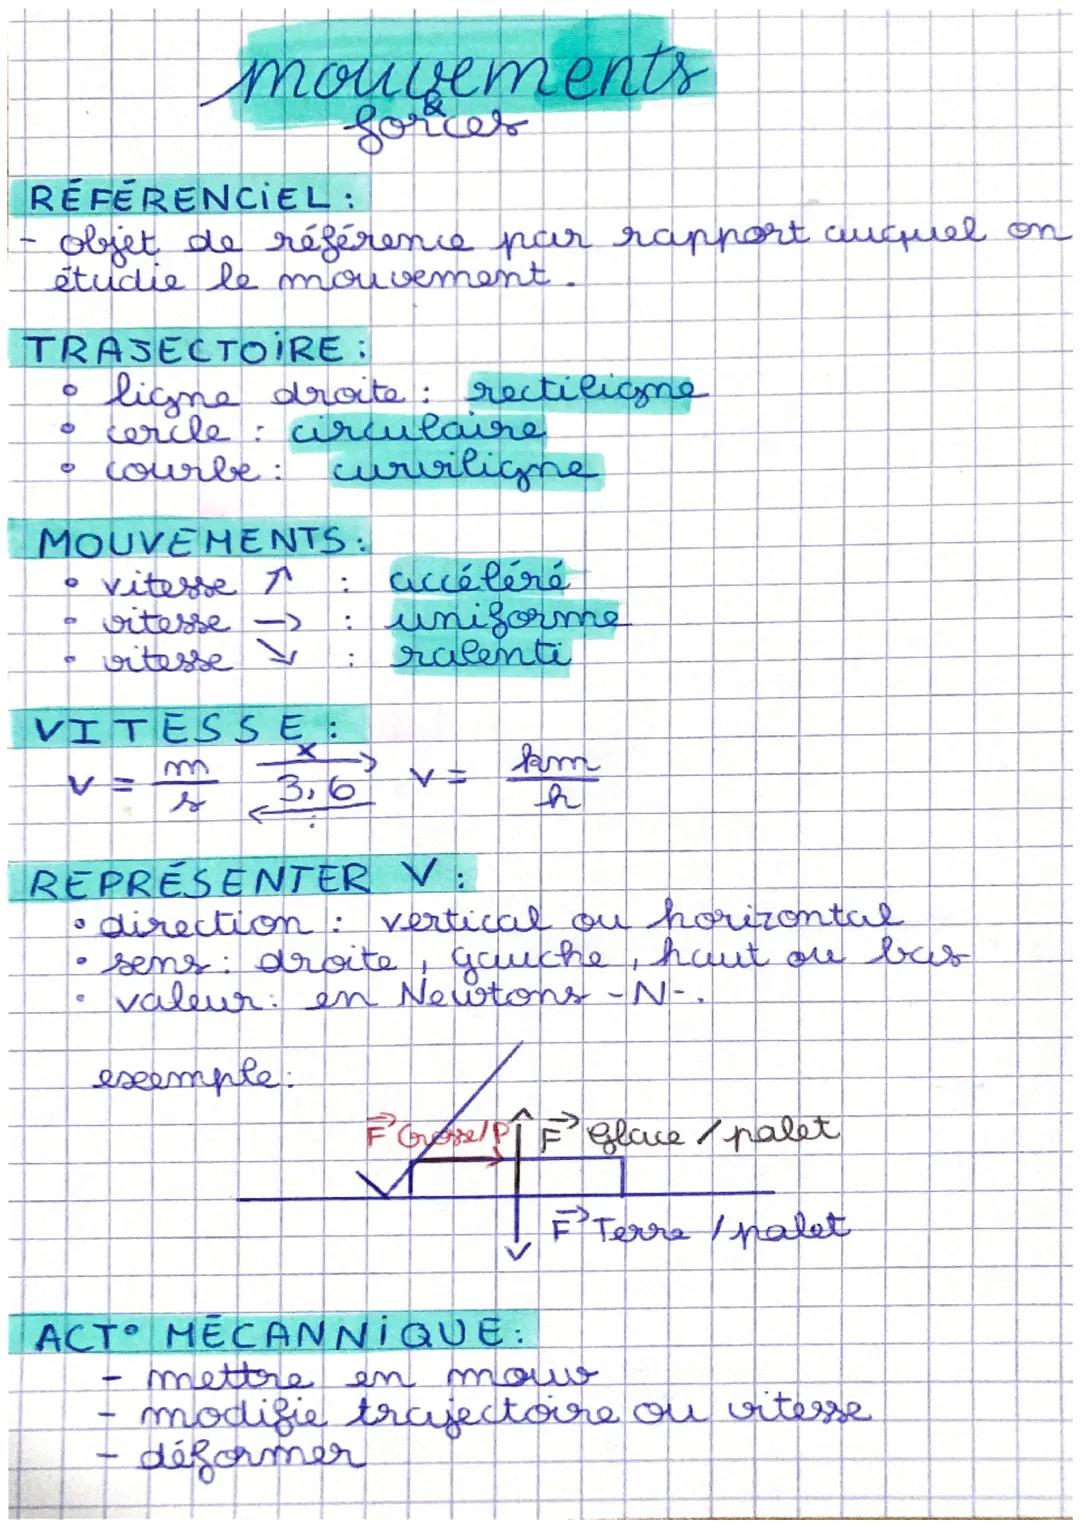 mouvements
&
forces
RÉFÉRENCIEL :
- objet de référence par rapport auquel on
étudie le mouvement.
TRAJECTOIRE :
• ligne droite : rectiligne
• cercle : circulaire
• courbe : curviligne
MOUVEMENTS :
• vitesse ↗ : accéléré
• vitesse → : uniforme
• vitesse ↘ : ralenti
VITESSE :
v = m/s ×→ 3,6 ←÷ v = km/h
REPRÉSENTER V :
• direction : vertical ou horizontal
• sens : droite, gauche, haut ou bas
• valeur : en Newtons -N-.
exemple :
F→ Crosse/P F→ Glace / palet
F→ Terre / palet
ACT° MÉCANNIQUE :
- mettre en mouv
- modifie trajectoire ou vitesse
- déformer